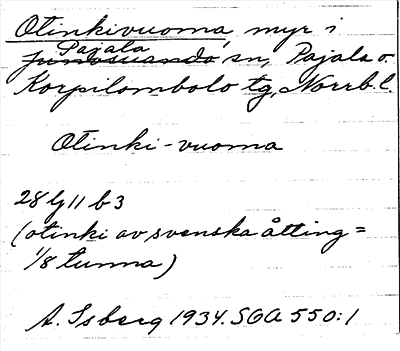 Otinkivuoma, myr i
Pajala
Junosuando sn, Pajala o.
Korpilombolo tg, Norrb. l.
Otinki-vuoma
28 G 11 b 3
(otinki av svenska åtting =
1/8 tunna)
A. Isberg 1934. SOA 550:1